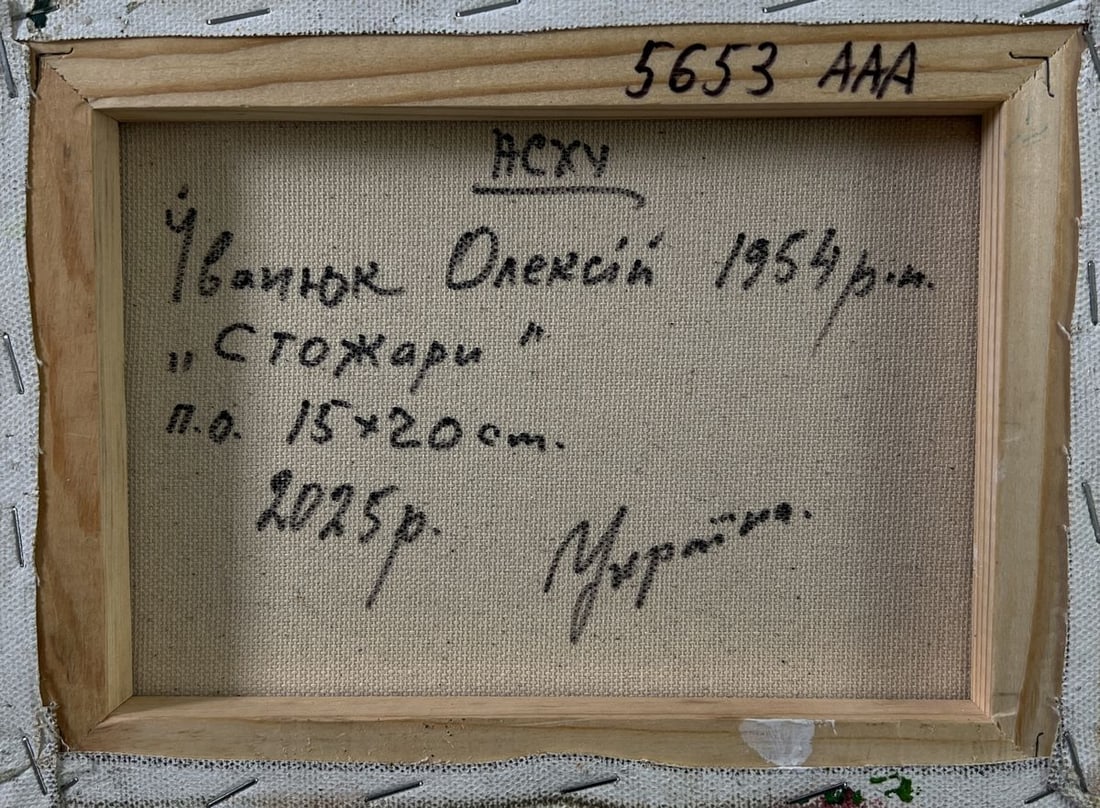 5653 AAA
АСХУ
Іванюк Олексій 1954 р.н.
„Стожари"
п.о. 15×20 cm.
2025 р.
Україна.